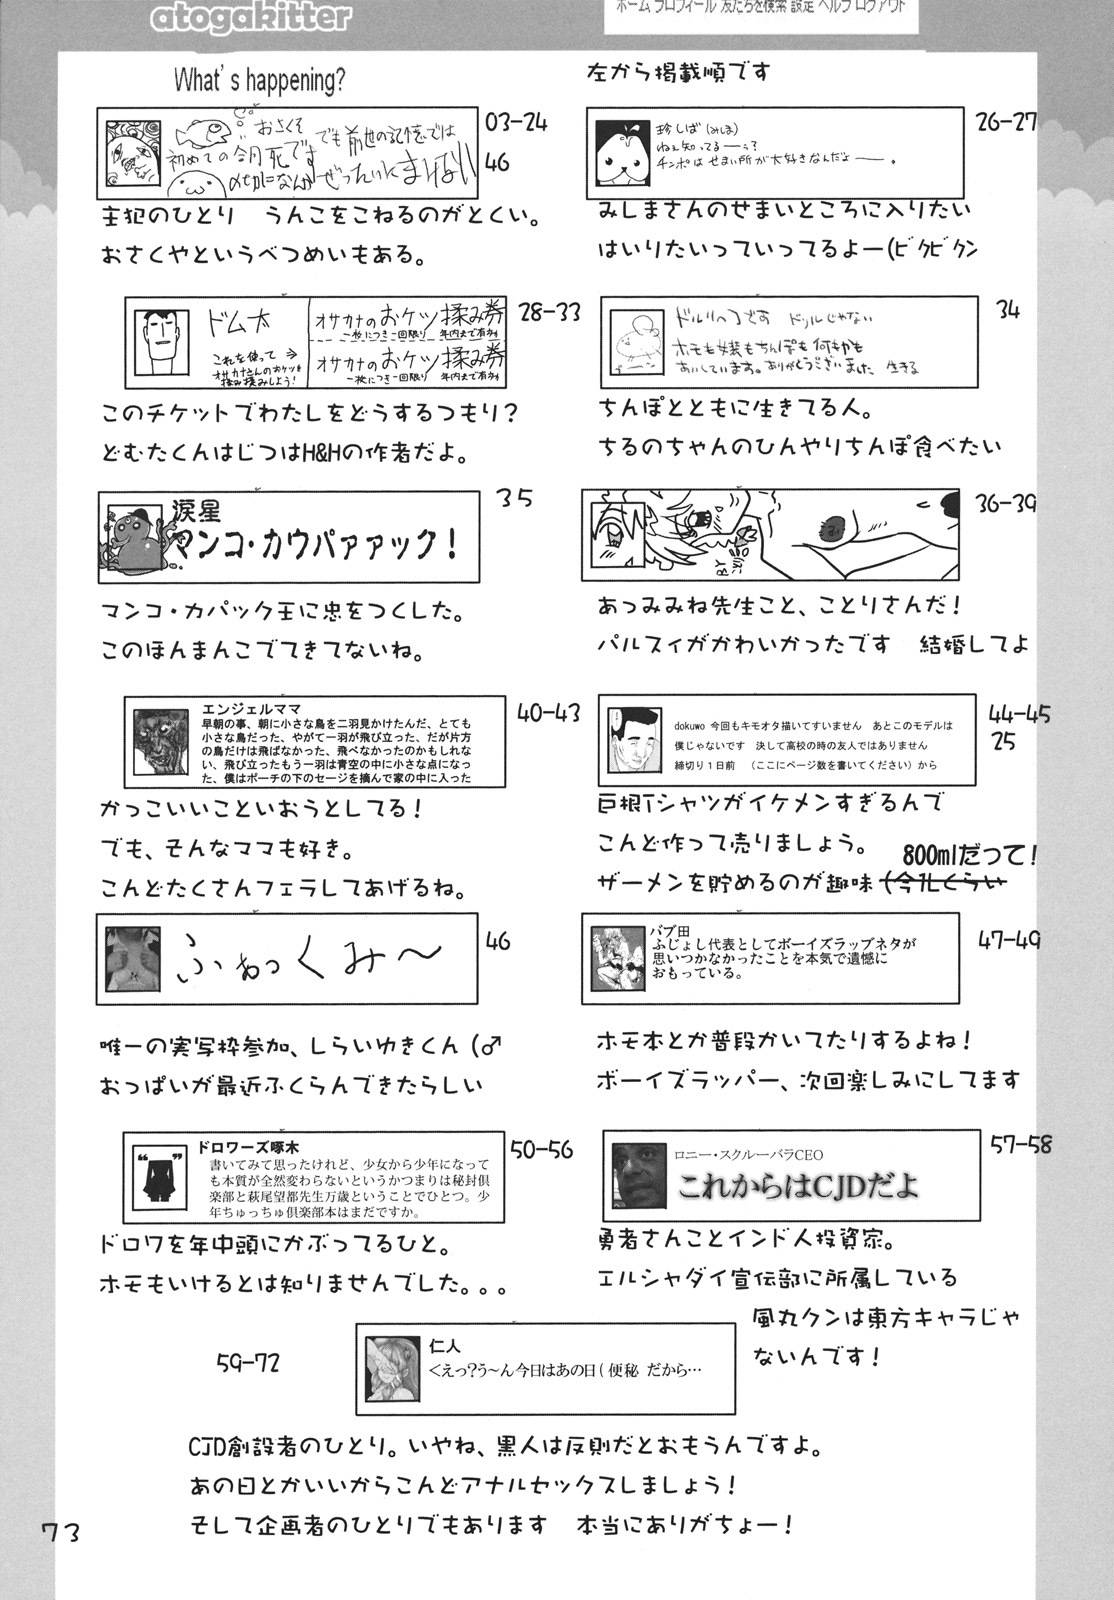 atogakitter
ホーム プロフィール 友だちを検索 設定 ヘルプ ログアウト
What's happening?
左から掲載順です
おさくそ
初めての今月死です でも前世の記憶では
ぜったいにまけない
03-24
46
主犯のひとり　うんこをこねるのがとくい。
おさくやというべつめいもある。
珍しば(みしま)
ねぇ知ってるーぅ?
チンポはせまい所が大好きなんだよ――。
26-27
みしまさんのせまいところに入りたい
はいりたいっていってるよー(ﾋﾞｸﾋﾞｸﾝ
ドム太
これを使って⇒
オサカナさんのおケツを
揉み揉みしよう!
オサカナのおケツ揉み券
一枚につき一回限り 年内まで有効
オサカナのおケツ揉み券
一枚につき一回限り 年内まで有効
28-33
このチケットでわたしをどうするつもり?
どむたくんはじつはH&Hの作者だよ。
ドリルじゃない
ホモも女装もちんぽも何もかも
あいしています。ありがとうございました 生きる
34
ちんぽとともに生きてる人。
ちるのちゃんのひんやりちんぽ食べたい
涙星
マンコ・カウパァァック!
35
マンコ・カパック王に忠をつくした。
このほんまんこでてきてないね。
36-39
あつみみね先生こと、ことりさんだ!
パルスィがかわいかったです　結婚してよ
エンジェルママ
早朝の事、朝に小さな鳥を二羽見かけたんだ、とても
小さな鳥だった、やがて一羽が飛び立った、だが片方
の鳥だけは飛ばなかった、飛べなかったのかもしれな
い、飛び立ったもう一羽は青空の中に小さな点になっ
た、僕はポーチの下のセージを摘んで家の中に入った
40-43
かっこいいこといおうとしてる!
でも、そんなママも好き。
こんどたくさんフェラしてあげるね。
dokuwo 今回もキモオタ描いてすいません　あとこのモデルは
僕じゃないです　決して高校の時の友人ではありません
締切り1日前　(ここにページ数を書いてください)から
44-45
25
巨根Tシャツがイケメンすぎるんで
こんど作って売りましょう。
800mlだって!
ザーメンを貯めるのが趣味(今1Lくらい
ふぁっくみ～
46
唯一の実写枠参加、しらいゆきくん(♂
おっぱいが最近ふくらんできたらしい
バブ田
ふじょし代表としてボーイズラップネタが
思いつかなかったことを本気で遺憾に
おもっている。
47-49
ホモ本とか普段かいてたりするよね!
ボーイズラッパー、次回楽しみにしてます
ドロワーズ啄木
書いてみて思ったけれど、少女から少年になって
も本質が全然変わらないというかつまりは秘封倶
楽部と萩尾望都先生万歳ということでひとつ。少
年ちゅっちゅ倶楽部本はまだですか。
50-56
ドロワを年中頭にかぶってるひと。
ホモもいけるとは知りませんでした。。。
ロニー・スクルーバラCEO
これからはCJDだよ
57-58
勇者さんことインド人投資家。
エルシャダイ宣伝部に所属している
風丸クンは東方キャラじゃ
ないんです!
59-72
仁人
<えっ?う～ん今日はあの日(便秘 だから…
CJD創設者のひとり。いやね、黒人は反則だとおもうんですよ。
あの日とかいいからこんどアナルセックスしましょう!
そして企画者のひとりでもあります　本当にありがちょー!
73